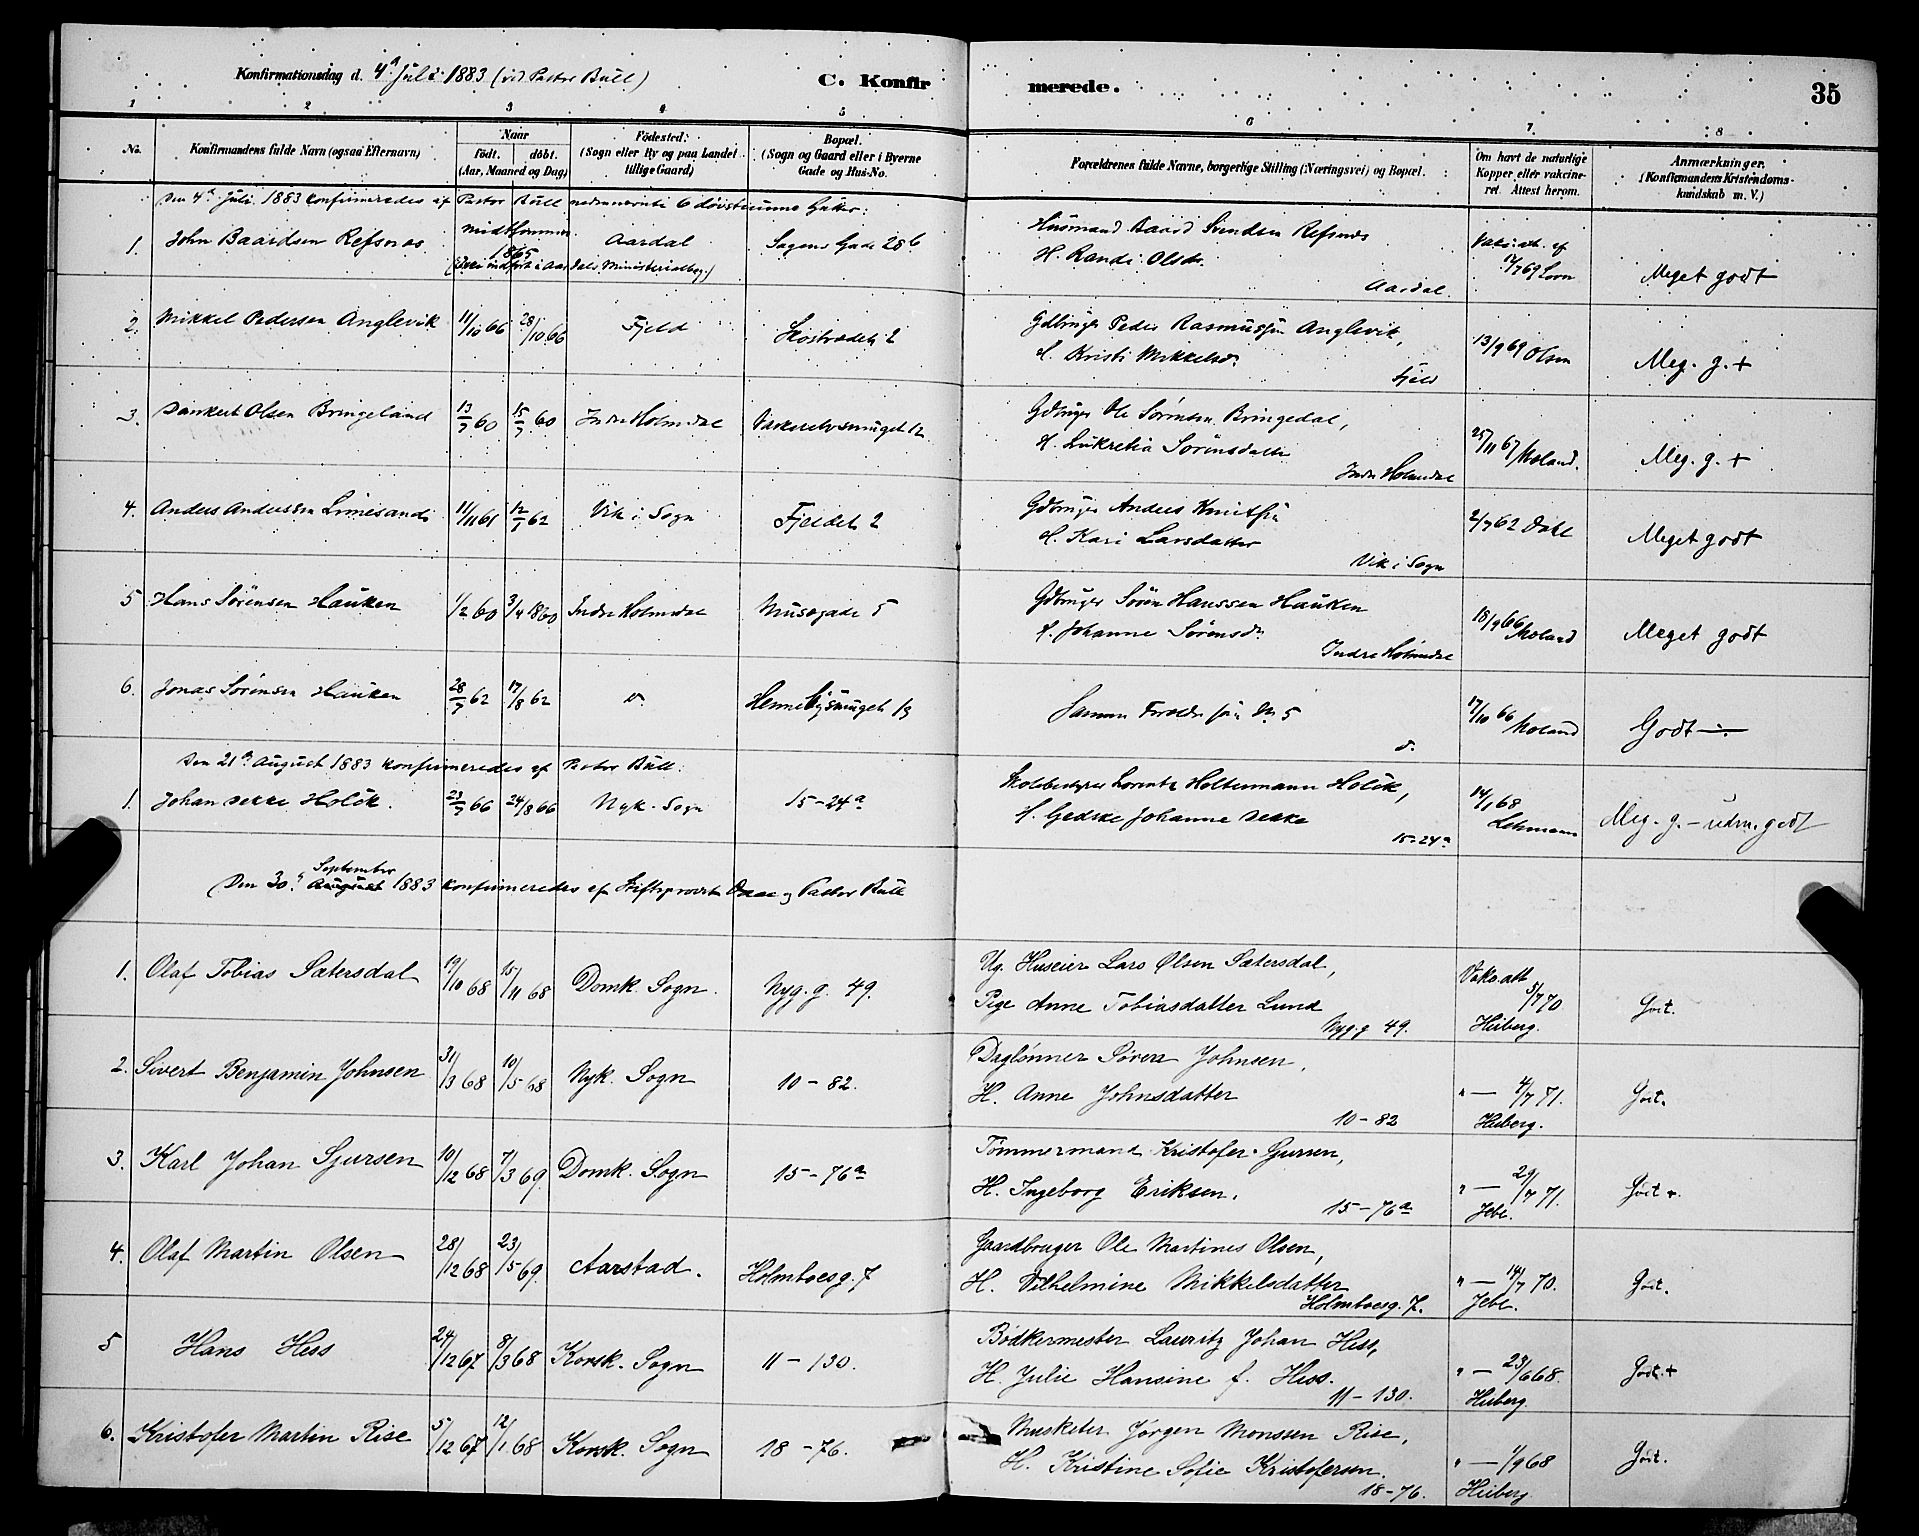 Konfirmationsdag d. 4de Juli 1883 (ved Pastor Bull) C. Konfirmerede. 35
1 2 3 4 5 6 7. 8
No. Konfirmandens fulde Navn (ogsaa Efternavn) Naar født. døbt. (Aar, Maaned og Dag) Fødested. (Sogn eller By og paa Landet tillige Gaard) Bopæl. (Sogn og Gaard eller i Byerne Gade og Hus-No. Forældrenes fulde Navne, borgerlige Stilling (Næringsvei) og Bopæl. Om havt de naturlige Kopper eller vakcineret. Attest herom. Anmærkninger. (Konfirmandens Kristendomskundskab m. V.)
Den 4de Juli 1883 konfirmeredes af Pastor Bull nedennævnte 6 døvstumme Gutter:
1. John Baardsen Refsnes midtsommer 1865 Aardal Sagens Gade 28 b Husmand Baard Svendsen Refsnes Vakc.att. af
(Ikke indført i Aardals Ministerialbog) H. Randi Olsdr. Aardal 17/7 69 Meget godt
2. Mikkel Pedersen Anglevik 11/10 66 28/10 66 Fjeld Skostrædet 2 Gdbruger Peder Rasmussen Anglevik,
H. Kristi Mikkelsdr. Fjeld 13/9 69 Olsen Meg. g. +
3. Dankert Olsen Bringeland 13/7 60 15/7 60 Indre Holmedal Gdbruger Ole Sørensen Bringedal,
H. Lukretia Sørensdatter Indre Holmedal 25/11 67 Moland. Meg. g. +
4. Anders Anderssen Limesand 11/11 61 12/1 62 Vik i Sogn Fjeldet 2 Gdbruger Anders Knutsen
H. Kari Larsdatter Vik i Sogn 2/7 62 Dahl Meget godt
5 Hans Sørensen Hauken 1/2 60 3/4 1860 Indre Holmedal Musegade 5 Gdbruger Søren Hanssen Hauken
H. Johanne Sørensdr. Indre Holmedal 18/9 66 Moland Meget godt
6. Jonas Sørensen Hauken 28/7 62 17/8 62 do. 13 Samme Forældre som No. 5
do. 17/10 66 Moland Godt ÷
Den 21de August 1883 konfirmeredes af Pastor Bull:
1. Johan Dekke Holck. 23/7 66 24/8 66 Nyk. Sogn 15-24a Skolebestyrer Lorentz Holtermann Holck,
H. Gedske Johanne Dekke 15-24a 14/1 68 Lehmann Meg. g. - udm. godt
Den 30. September August 1883 konfirmeredes af Stiftsprovst og Pastor Bull
1. Olaf Tobias Sætersdal 19/10 68 15/11 68 Domk. Sogn. Nyg. g. 49. Ug. Huseier Lars Olsen Sætersdal,
Pige Anne Tobiasdatter Lund Nyg.g 49. Vaks.att. 5/7 70 Heiberg. Godt.
2. Sivert Benjamin Johnsen 31/3 68 10/5 68 Nyk. Sogn 10-82. Daglønner Søren Johnsen,
H. Anne Johnsdatter 10-82 " — 4/7 71. Heiberg. Godt.
3. Karl Johan Sjursen 10/12 68 7/3 69. Domk. Sogn 15-76a Tømmermand Kristofer Gjursen,
H. Ingeborg Eriksen. 15-76a " — 29/7 71. Jebe. Godt +.
4. Olaf Martin Olsen 28/12 68 23/5 69. Aarstad. Holmboesg. 7 Gaardbruger Ole Martines Olsen,
H. Vilhelmine Mikkelsdatter Holmboesg. 7. " — 14/7 70. Jebe. Godt.
5 Hans Hess 24/12 67 8/3 68 Korsk. Sogn 11-130. Bødkermester Lauritz Johan Hess,
H. Julie Hansine f. Hess. 11-130. " — 23/6 68. Heiberg Godt. +
6. Kristofer Martin Rise 5/12 67 12/1 68 Korsk. Sogn 18-76. Musketer Jørgen Monssen Rise,
H. Kristine Sofie Kristofersen. 18-76. " — 1/9 68 Heiberg Godt.